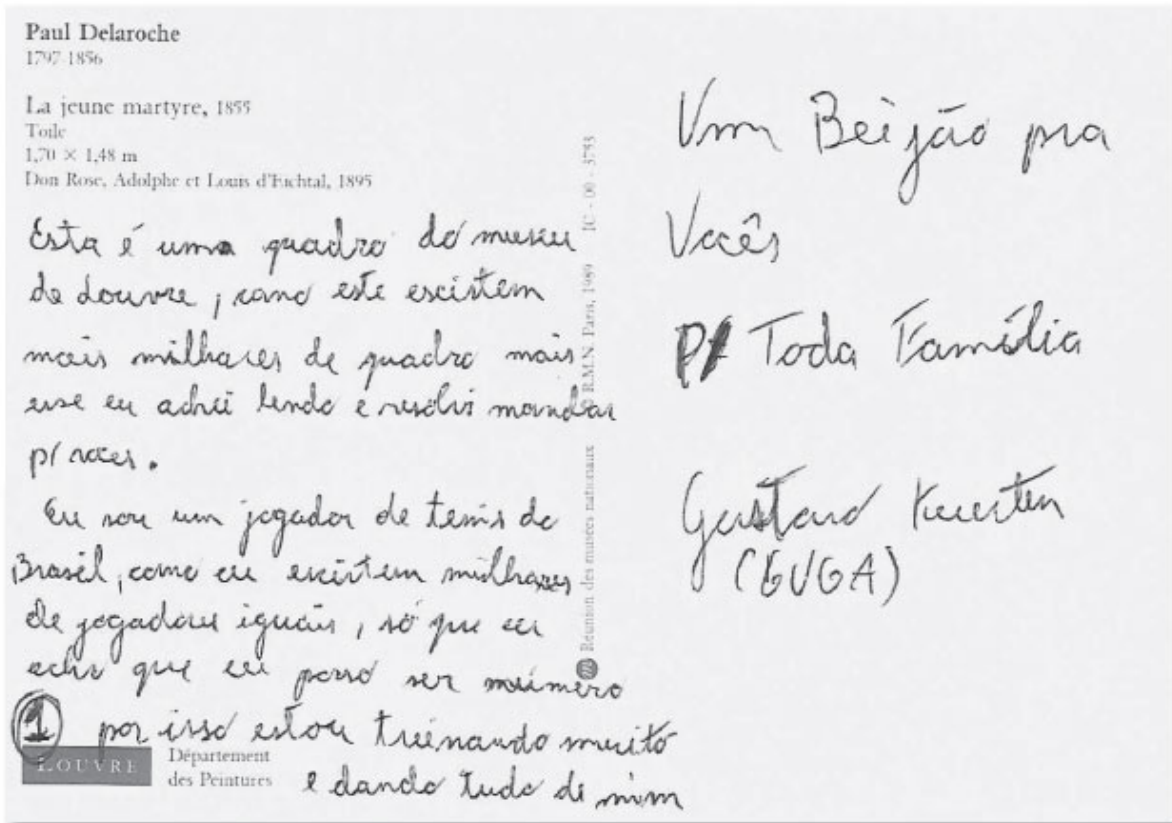 Paul Delaroche
1797-1856
La jeune martyre, 1855
Toile
1,70 × 1,48 m
Don Rose, Adolphe et Louis d'Eichtal, 1895
Esta é uma quadro do museu
do Louvre, como este escistem
mais milhares de quadro mais
esse eu achei lendo e resolvi mandar
p/ voces.
Eu sou um jogador de tenis do
Brasil, como eu escistem milhares
de jogadores iguais, só que eu
acho que eu posso ser número
1 por isso estou treinando muito
e dando tudo de mim
LOUVRE
Département
des Peintures
Réunion des musées nationaux © R.M.N. Paris, 1989 IC - 00 - 3753
Um Beijão pra
Vocês
P/ Toda Família
Gustavo Kuerten
(GUGA)